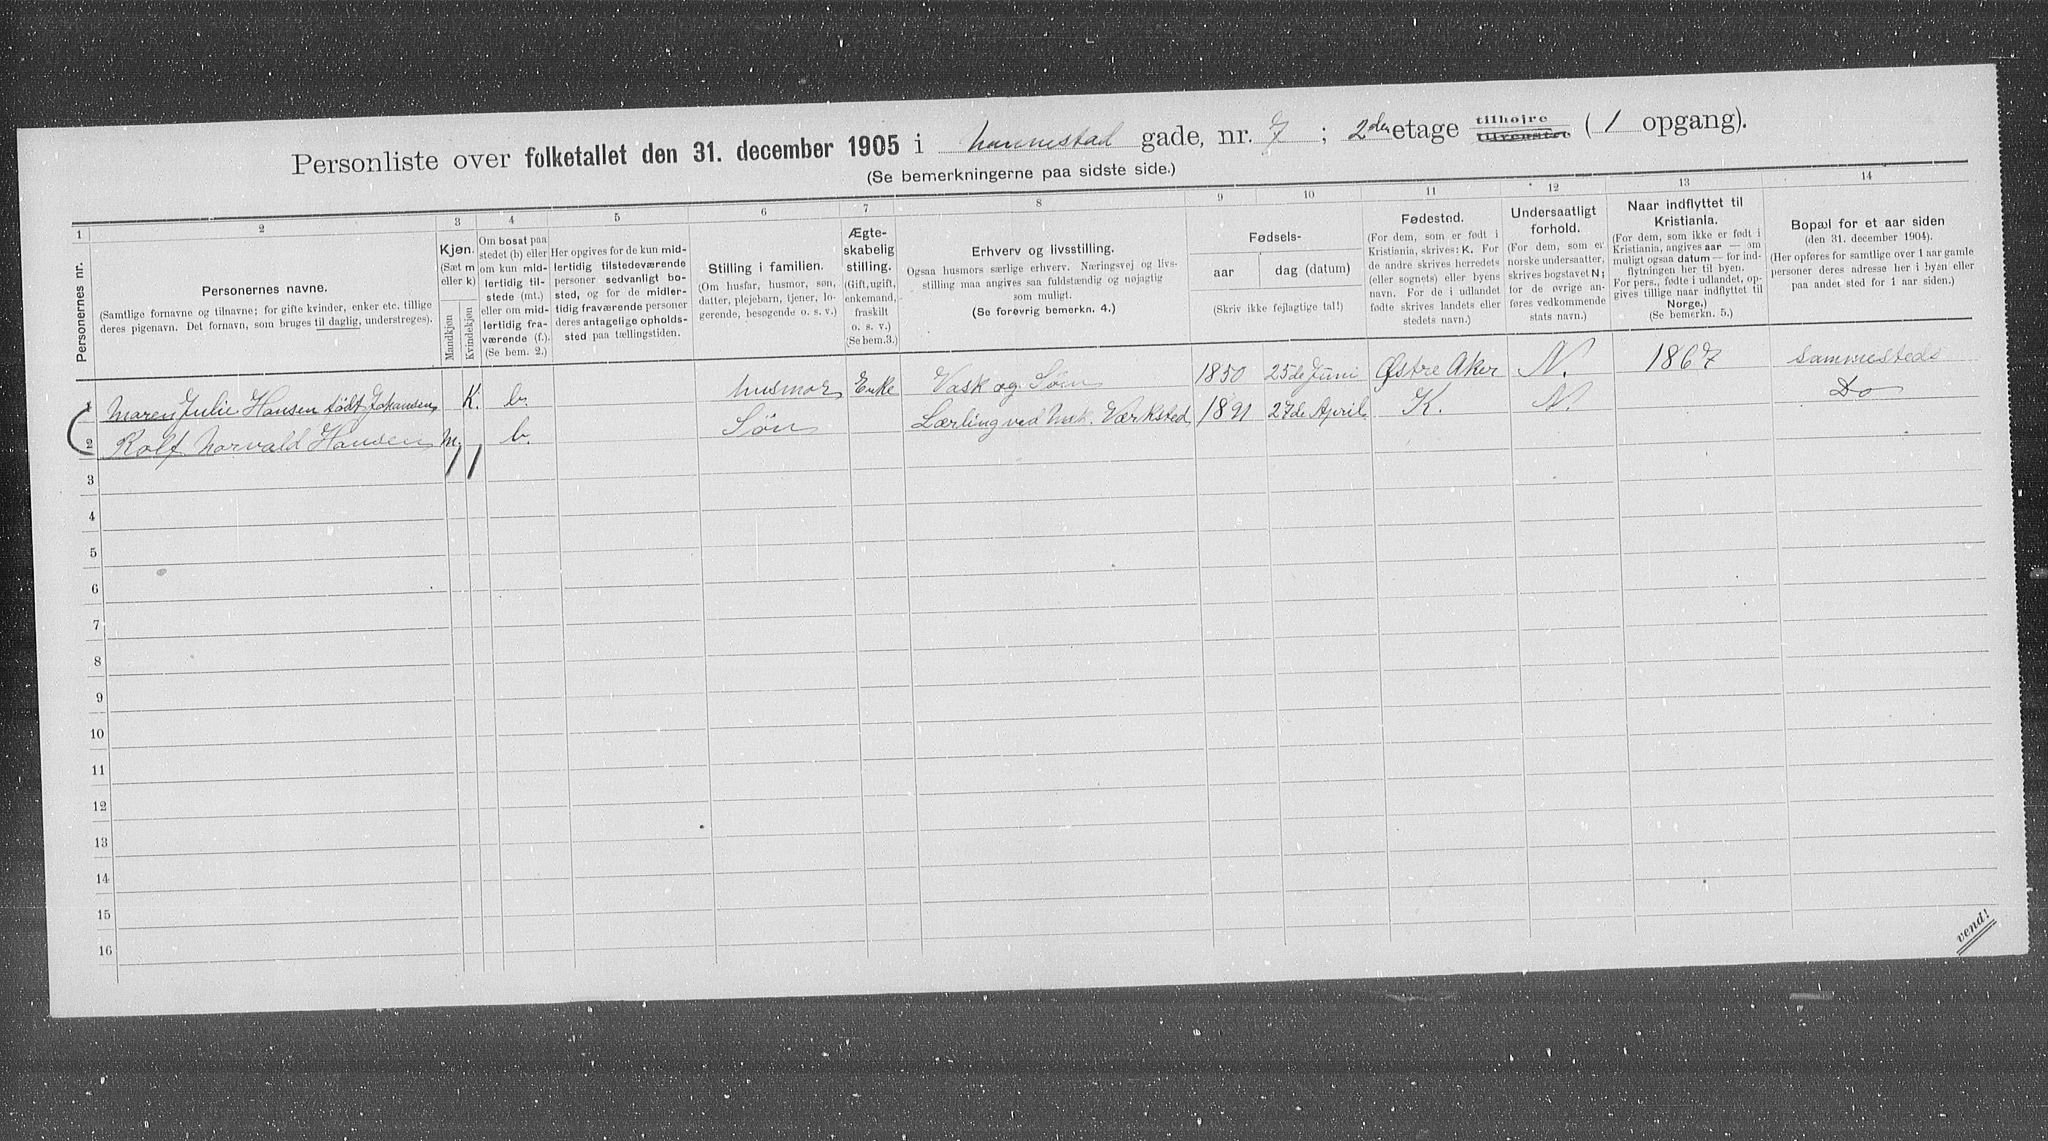 Personliste over folketallet den 31. december 1905 i Mannestad gade, nr. 7 ; 2den etage tilhøire tilvenstre ( 1 opgang).
(Se bemerkningerne paa sidste side.)
1 2 3 4 5 6 7 8 9 10 11 12 13 14
Personernes nr.
Personernes navne.
(Samtlige fornavne og tilnavne; for gifte kvinder, enker etc. tillige
deres pigenavn. Det fornavn, som bruges til daglig, understreges).
Kjøn.
(Sæt m
eller k)
Mandkjøn
Kvindekjøn
Om bosat paa
stedet (b) eller
om kun mid-
lertidig til-
stede (mt.)
eller om mid-
lertidig fra-
værende (f.).
(Se bem. 2.)
Her opgives for de kun mid-
lertidig tilstedeværende
personer sedvanligt bo-
sted, og for de midler-
tidig fraværende personer
deres antagelige opholds-
sted paa tællingstiden.
Stilling i familien.
(Om husfar, husmor, søn,
datter, plejebarn, tjener, lo-
gerende, besøgende o. s. v.)
Ægte-
skabelig
stilling.
(Gift, ugift,
enkemand,
fraskilt
o. s. v.)
(Se bem. 3.)
Erhverv og livsstilling.
Ogsaa husmors særlige erhverv. Næringsvej og livs-
stilling maa angives saa fuldstændig og nøjagtig
som muligt.
(Se forøvrig bemerkn. 4.)
Fødsels-
aar
dag (datum)
(Skriv ikke fejlagtige tal!)
Fødested.
(For dem, som er født i
Kristiania, skrives: K. For
de andre skrives herredets
(eller sognets) eller byens
navn. For de i udlandet
fødte skrives landets eller
stedets navn.)
Undersaatligt
forhold.
(For dem, som er
norske undersaatter,
skrives bogstavet N;
for de øvrige an-
føres vedkommende
stats navn.)
Naar indflyttet til
Kristiania.
(For dem, som ikke er født i
Kristiania, angives aar – om
muligt ogsaa datum – for ind-
flytningen her til byen.
For pers., fødte i udlandet, op-
gives tillige naar indflyttet til
Norge.)
(Se bemerkn. 5.)
Bopæl for et aar siden
(den 31. december 1904).
(Her opføres for samtlige over 1 aar gamle
personer deres adresse her i byen eller
paa andet sted for 1 aar siden.)
1 Maren Julie Hansen født Johansen K. b. husmor Enke Vask og Søm 1850 25de Juni Østre Aker N. 1867 Sammesteds
2 Rolf Norvald Hansen m. b. Søn Lærling ved Mek. Værksted 1891 27de April K. N. Do
3
4
5
6
7
8
9
10
11
12
13
14
15
16
vend!